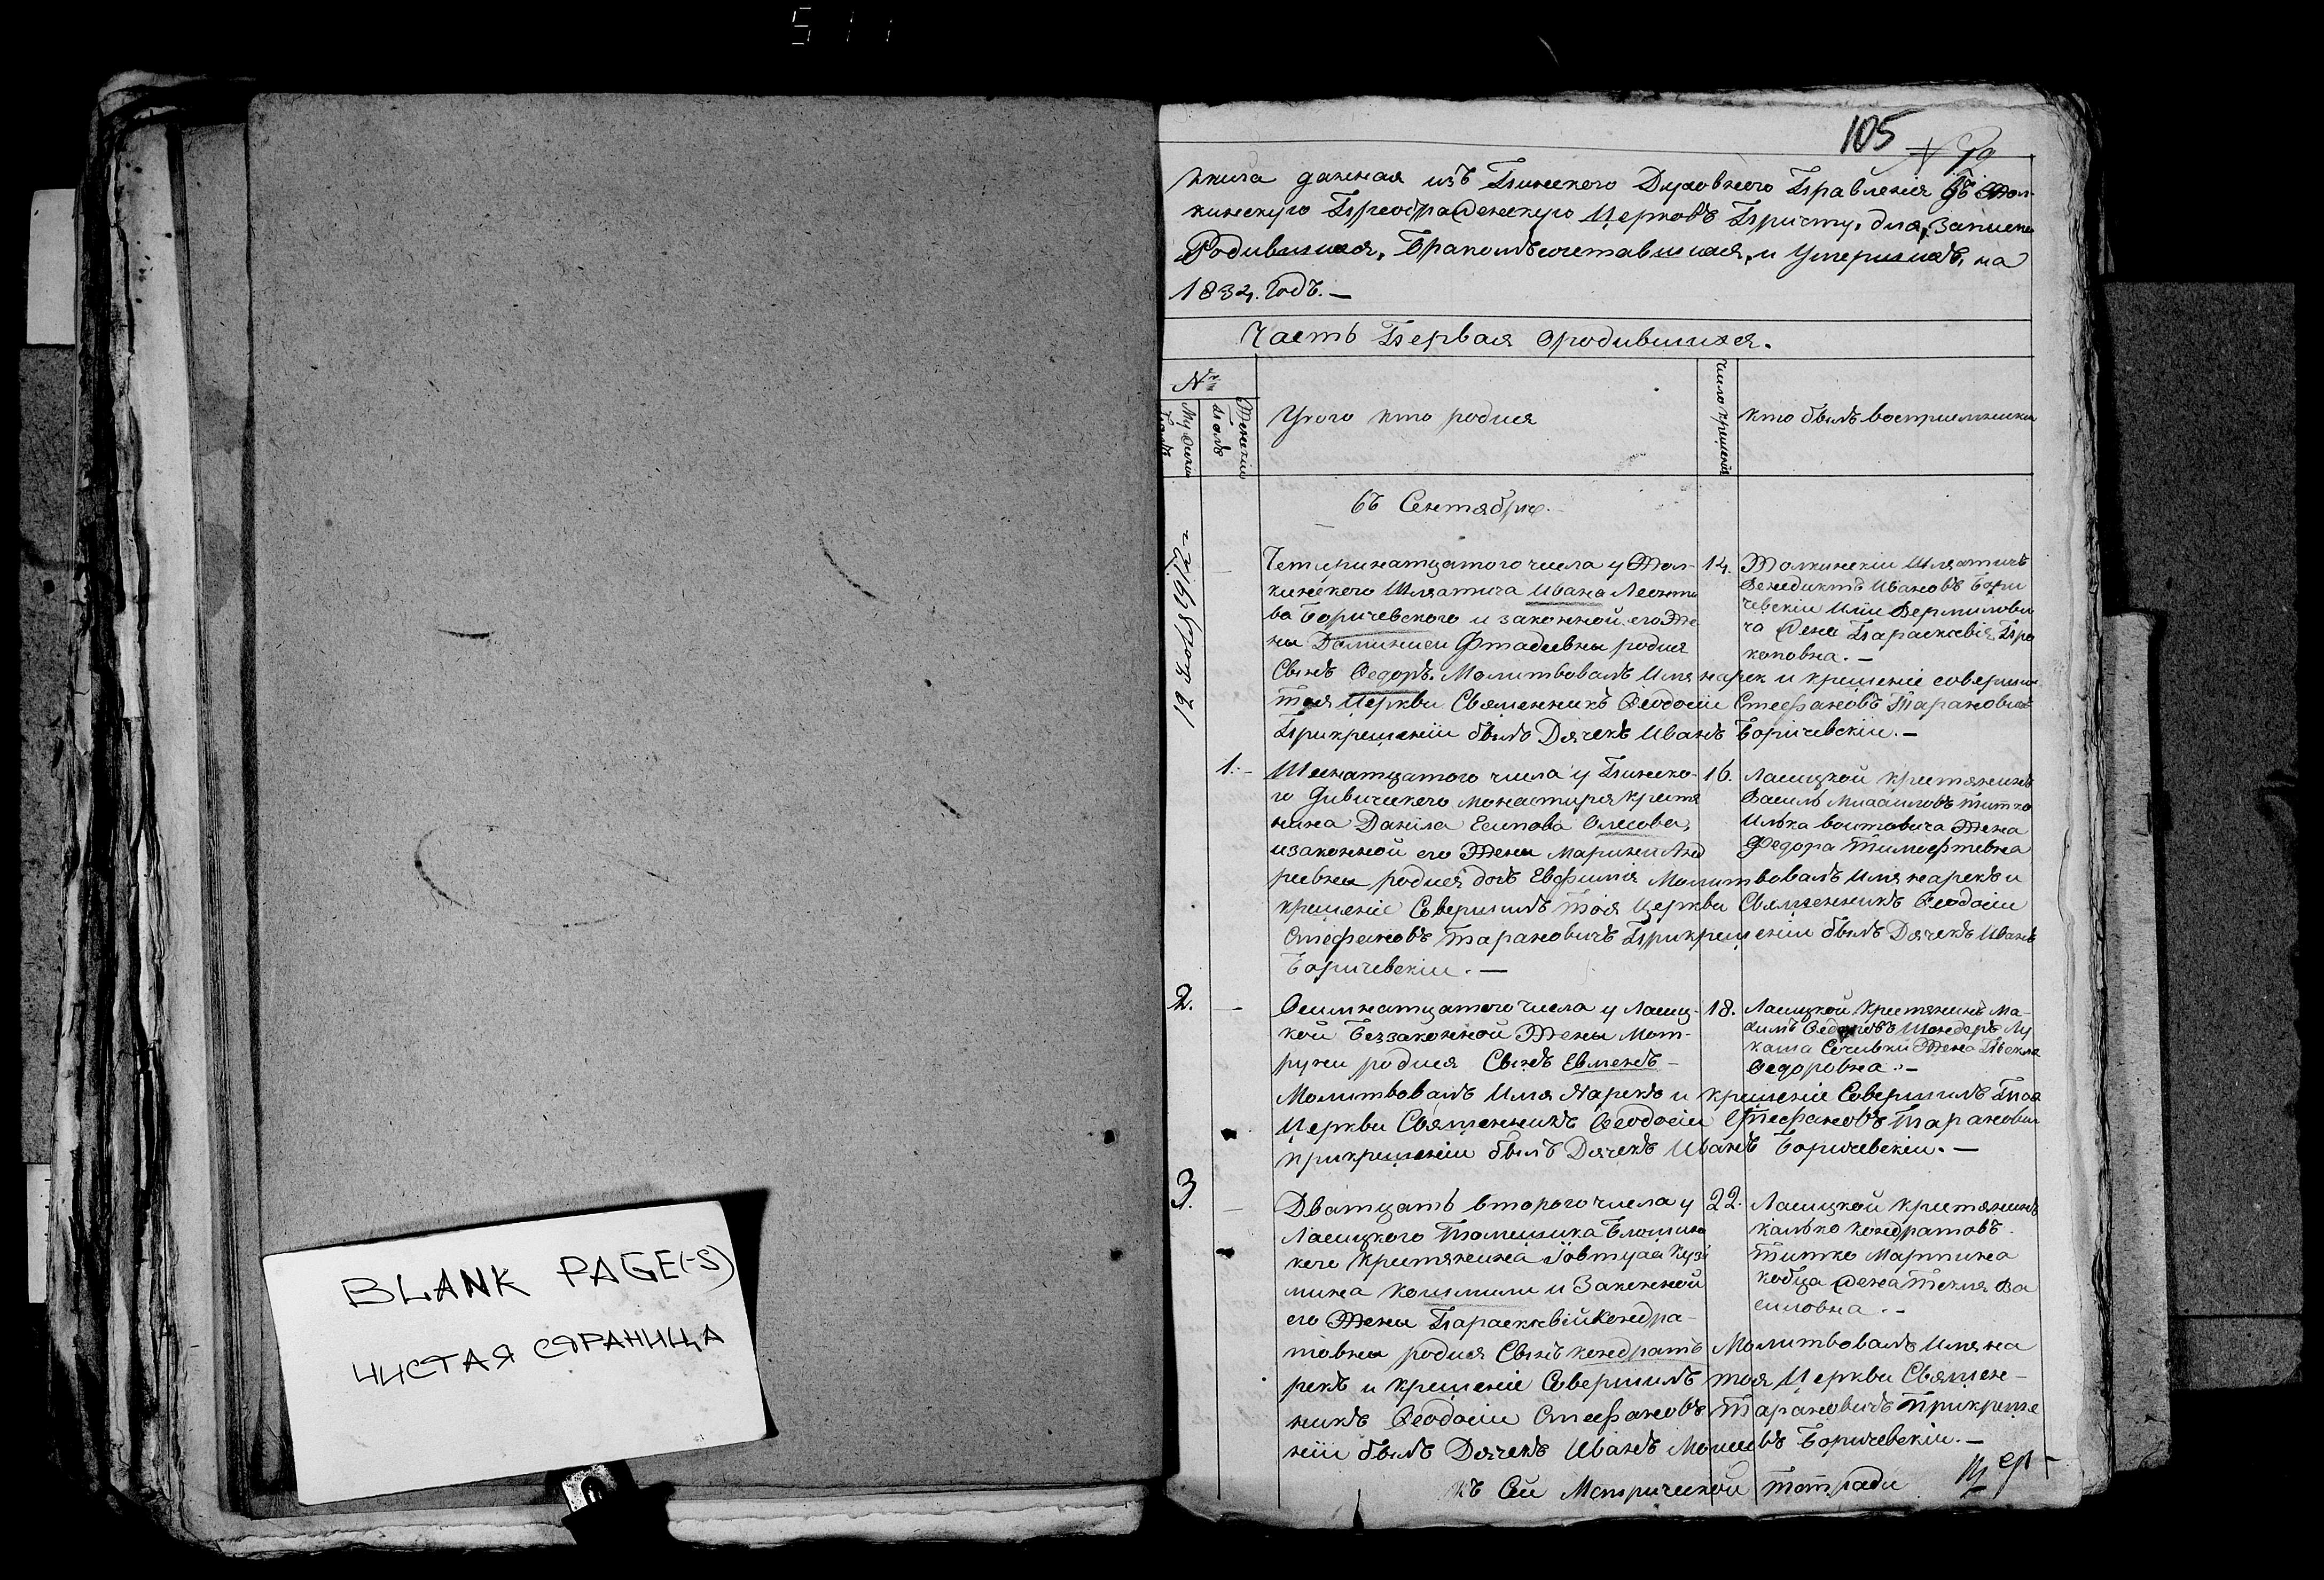 511
BLANK PAGE(-S)
ЧИСТАЯ СТРАНИЦА
105
Книга данная изъ Пинского Духовного Правленія въ Жол-
кинскую Преображенскую Церковъ Причту, для, Записки
Родившихся, Бракомъ сочетавшихся, и Умершихъ, на
1834. Годъ. —
Часть Первая о родившихся.
№
Мужески Полъ
Женскіи Полъ
У кого кто родися
Число крещенія
кто былъ восприемники
въ Сентябрѣ.
Четиринатцатого числа у Жол-
кинского Шляхтича Ивана Леонти
ва Боричевского и законной его Же
ны Доминики Фтадиевны родися
Сынъ Ѳедоръ. Молитвовалъ Имя нарек и крещеніе соверши
тоя Церкви Священникъ Ѳеодосіи Стефановъ Тарановичъ
При крещеніи былъ Дячекъ Иванъ Боричевскіи. —
14.
Жолкинскіи Шляхтичъ
Венедиктъ Ивановъ Бори
чевскіи Иліи Вермилови
ча Жена Параскевія Про
коповна. —
1. -
Шеснатцатого числа у Пинско-
го Дивического монастиря кристя
нина Данила Есипова Олисова,
и законной его Жены Марини Анд
риевны родися дочъ Евфимія Молитвовалъ имя нарекъ и
крещеніе Совершилъ тоя Церкви Священникъ Ѳеодосіи
Стефановъ Тарановичъ При крещеніи былъ Дячекъ Иванъ
Боричевскіи. —
16.
Ласицкой кристянинъ
Василь Михаиловъ Титко
Илька воитовича Жена
Федора Тимофтевна
2.
Осимнатцатого числа у Ласиц-
кой Беззаконной Жены Мот-
руни родися Сынъ Евменъ -
Молитвовалъ Имя Нарекъ и крещеніе Совершилъ Тоя
Церкви Священникъ Ѳеодосіи Стефановъ Таранович
при крещеніи былъ Дячекъ Иванъ Боричевскіи. —
18.
Ласицкой Кристянинъ Ма-
ксимъ Ѳедоровъ Шендеръ Лу
каша Сечивки Жена Текля
Ѳедоровна. -
3.
Дватцать второго числа у
Ласицкого Помещика
кого Кристянина Іовтуха Кузь
мина и Законной
его Жены Параскевіи Кондра-
товны родися Сынъ Кондратъ Молитвовалъ Имя на
рекъ и крещеніе Совершилъ тоя Церкви Священ-
никъ Ѳеодосіи Стефановъ Тарановичъ При креще
ніи былъ Дячекъ Иванъ Боричевскіи. —
22.
Ласицкой кристянинъ
калько кондратовъ
Титко Мартина
кобца Жена Текля Ва
силовна. -
къ Сеи Метрической тетради